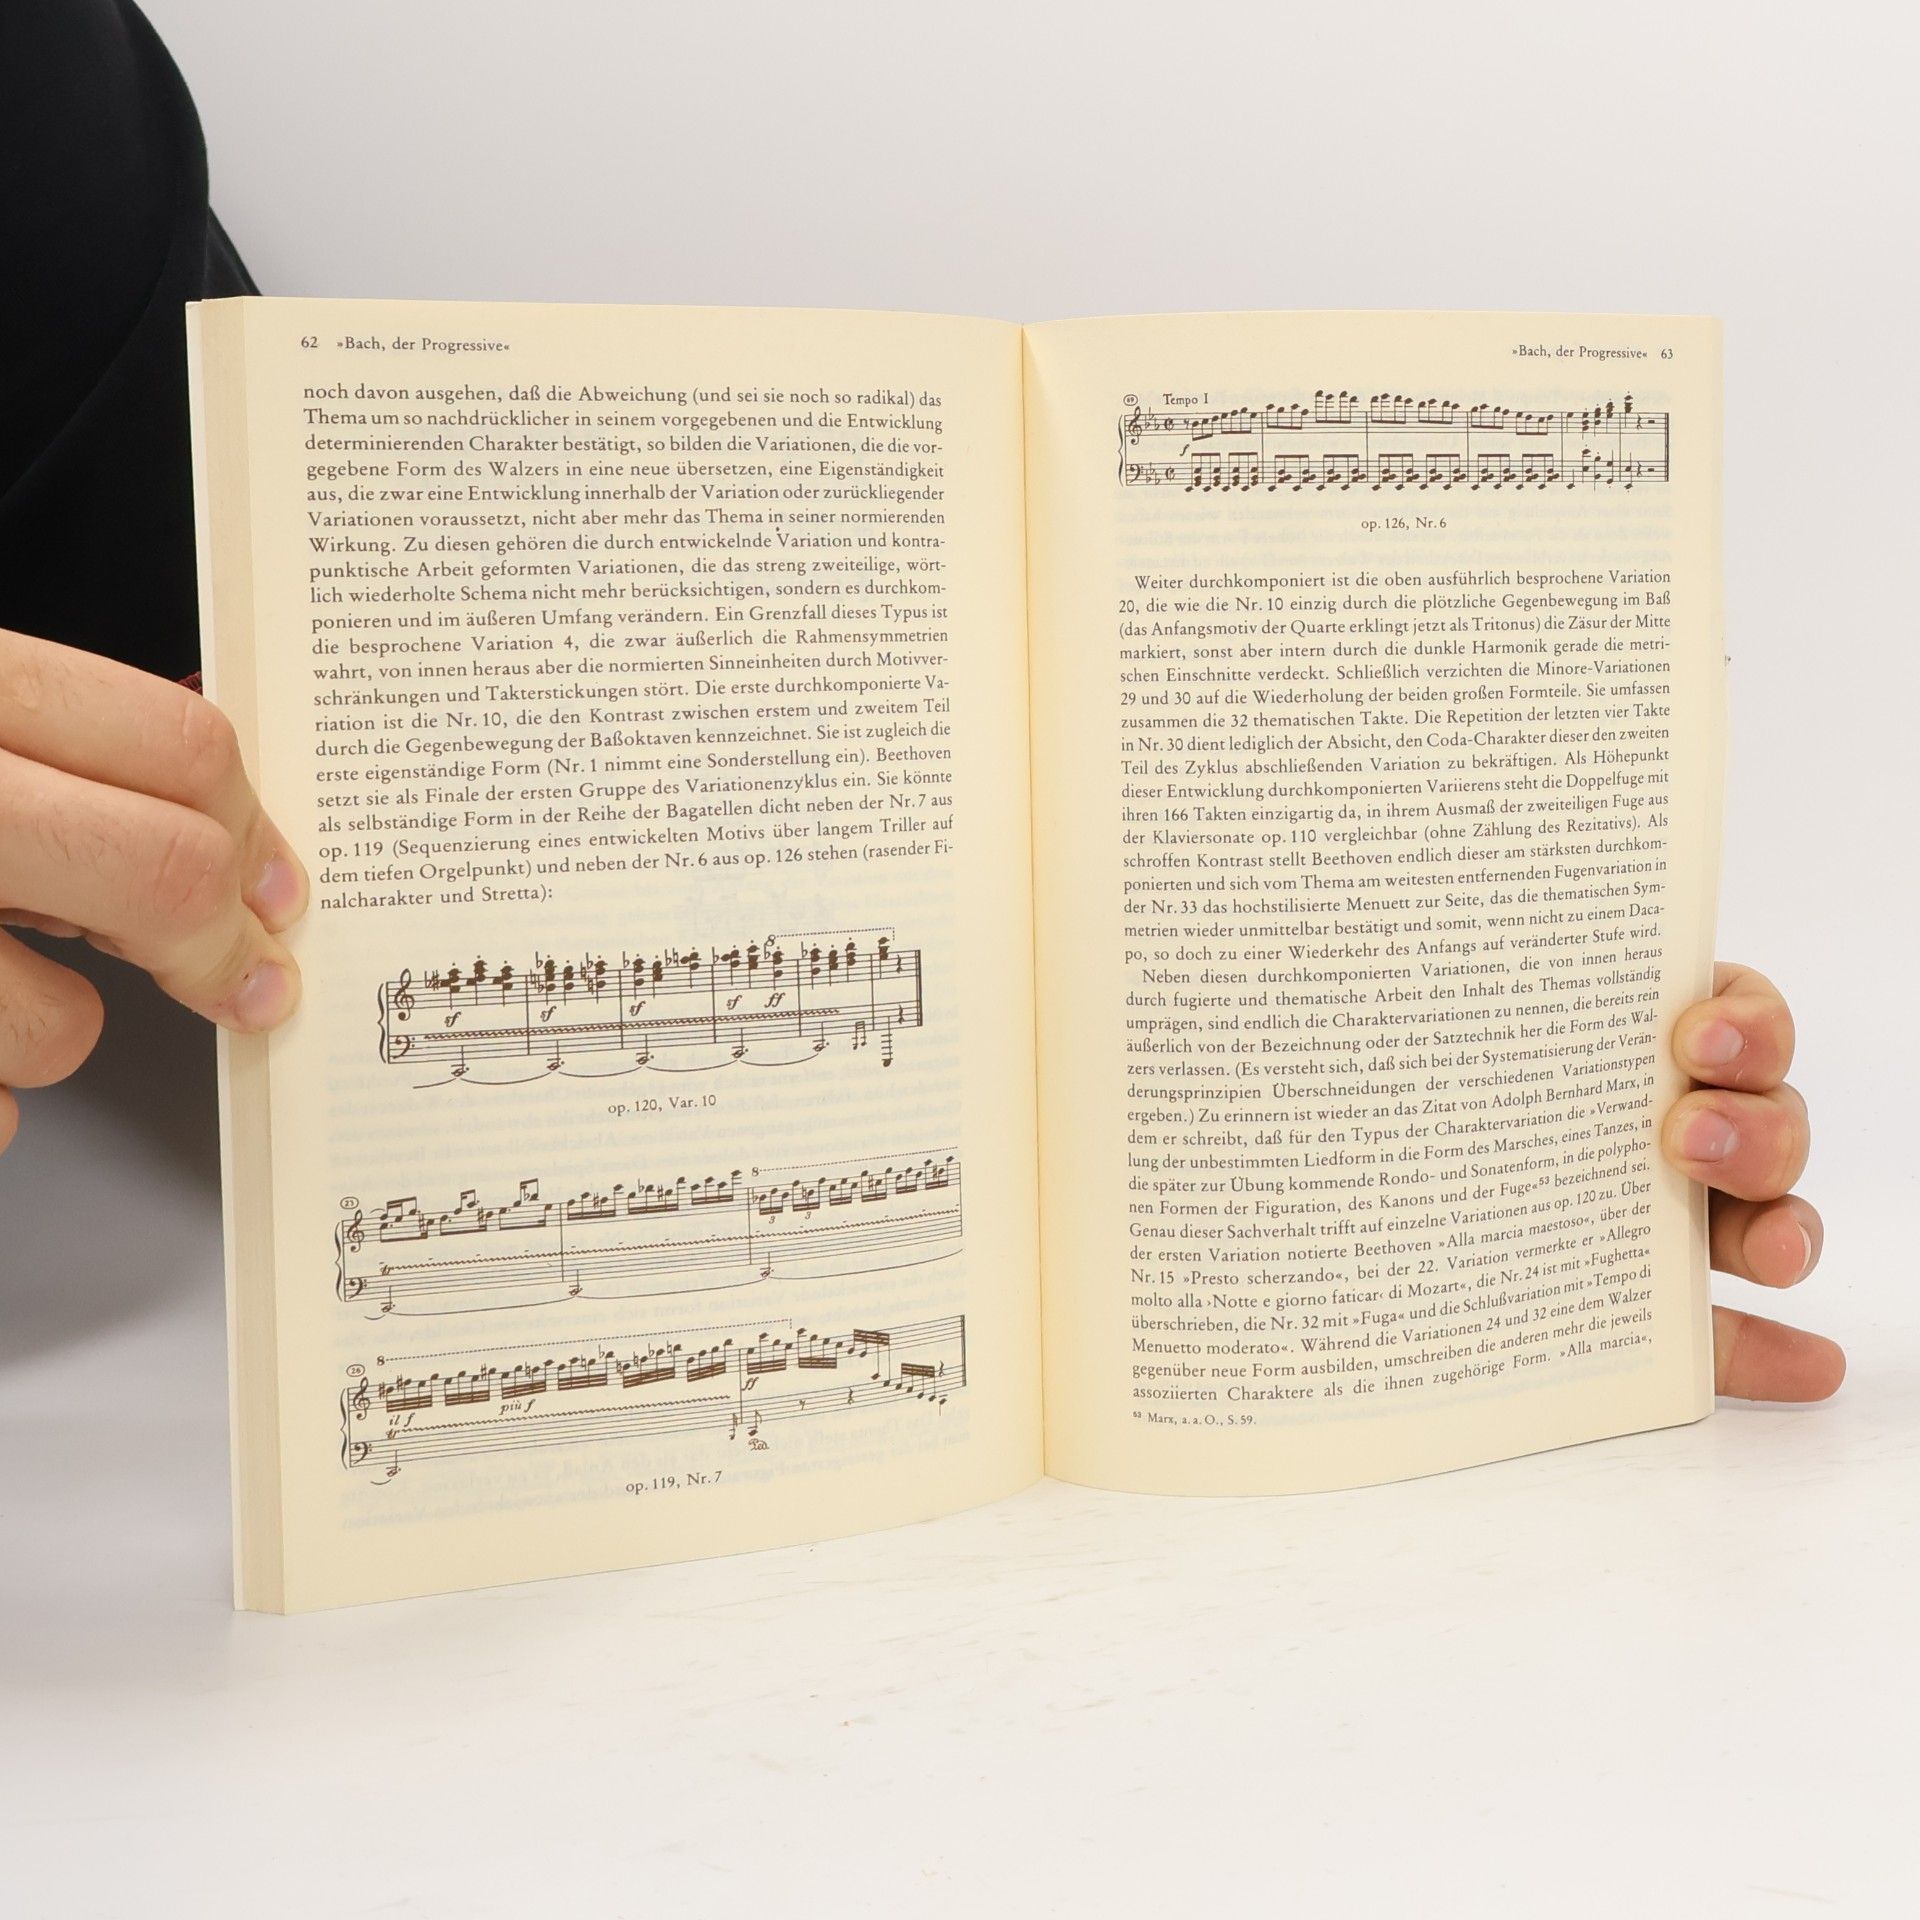 62 »Bach, der Progressive«
noch davon ausgehen, daß die Abweichung (und sei sie noch so radikal) das
Thema um so nachdrücklicher in seinem vorgegebenen und die Entwicklung
determinierenden Charakter bestätigt, so bilden die Variationen, die die vor-
gegebene Form des Walzers in eine neue übersetzen, eine Eigenständigkeit
aus, die zwar eine Entwicklung innerhalb der Variation oder zurückliegender
Variationen voraussetzt, nicht aber mehr das Thema in seiner normierenden
Wirkung. Zu diesen gehören die durch entwickelnde Variation und kontra-
punktische Arbeit geformten Variationen, die das streng zweiteilige, wört-
lich wiederholte Schema nicht mehr berücksichtigen, sondern es durchkom-
ponieren und im äußeren Umfang verändern. Ein Grenzfall dieses Typus ist
die besprochene Variation 4, die zwar äußerlich die Rahmensymmetrien
wahrt, von innen heraus aber die normierten Sinneinheiten durch Motivver-
schränkungen und Takterstickungen stört. Die erste durchkomponierte Va-
riation ist die Nr. 10, die den Kontrast zwischen erstem und zweitem Teil
durch die Gegenbewegung der Baßoktaven kennzeichnet. Sie ist zugleich die
erste eigenständige Form (Nr. 1 nimmt eine Sonderstellung ein). Beethoven
setzt sie als Finale der ersten Gruppe des Variationenzyklus ein. Sie könnte
als selbständige Form in der Reihe der Bagatellen dicht neben der Nr. 7 aus
op. 119 (Sequenzierung eines entwickelten Motivs über langem Triller auf
dem tiefen Orgelpunkt) und neben der Nr. 6 aus op. 126 stehen (rasender Fi-
nalcharakter und Stretta):
8
sf sf sf sf ff
op. 120, Var. 10
23 8
tr
3 3
26 8
il f più f ff
tr
Ped.
op. 119, Nr. 7
»Bach, der Progressive« 63
69 Tempo I
f
op. 126, Nr. 6
Weiter durchkomponiert ist die oben ausführlich besprochene Variation
20, die wie die Nr. 10 einzig durch die plötzliche Gegenbewegung im Baß
(das Anfangsmotiv der Quarte erklingt jetzt als Tritonus) die Zäsur der Mitte
markiert, sonst aber intern durch die dunkle Harmonik gerade die metri-
schen Einschnitte verdeckt. Schließlich verzichten die Minore-Variationen
29 und 30 auf die Wiederholung der beiden großen Formteile. Sie umfassen
zusammen die 32 thematischen Takte. Die Repetition der letzten vier Takte
in Nr. 30 dient lediglich der Absicht, den Coda-Charakter dieser den zweiten
Teil des Zyklus abschließenden Variation zu bekräftigen. Als Höhepunkt
dieser Entwicklung durchkomponierten Variierens steht die Doppelfuge mit
ihren 166 Takten einzigartig da, in ihrem Ausmaß der zweiteiligen Fuge aus
der Klaviersonate op. 110 vergleichbar (ohne Zählung des Rezitativs). Als
schroffen Kontrast stellt Beethoven endlich dieser am stärksten durchkom-
ponierten und sich vom Thema am weitesten entfernenden Fugenvariation in
der Nr. 33 das hochstilisierte Menuett zur Seite, das die thematischen Sym-
metrien wieder unmittelbar bestätigt und somit, wenn nicht zu einem Daca-
po, so doch zu einer Wiederkehr des Anfangs auf veränderter Stufe wird.
Neben diesen durchkomponierten Variationen, die von innen heraus
durch fugierte und thematische Arbeit den Inhalt des Themas vollständig
umprägen, sind endlich die Charaktervariationen zu nennen, die bereits rein
äußerlich von der Bezeichnung oder der Satztechnik her die Form des Wal-
zers verlassen. (Es versteht sich, daß sich bei der Systematisierung der Verän-
derungsprinzipien Überschneidungen der verschiedenen Variationstypen
ergeben.) Zu erinnern ist wieder an das Zitat von Adolph Bernhard Marx, in
dem er schreibt, daß für den Typus der Charaktervariation die »Verwand-
lung der unbestimmten Liedform in die Form des Marsches, eines Tanzes, in
die später zur Übung kommende Rondo- und Sonatenform, in die polypho-
nen Formen der Figuration, des Kanons und der Fuge«⁵³ bezeichnend sei.
Genau dieser Sachverhalt trifft auf einzelne Variationen aus op. 120 zu. Über
der ersten Variation notierte Beethoven »Alla marcia maestoso«, über der
Nr. 15 »Presto scherzando«, bei der 22. Variation vermerkte er »Allegro
molto alla ›Notte e giorno faticar‹ di Mozart«, die Nr. 24 ist mit »Fughetta«
überschrieben, die Nr. 32 mit »Fuga« und die Schlußvariation mit »Tempo di
Menuetto moderato«. Während die Variationen 24 und 32 eine dem Walzer
gegenüber neue Form ausbilden, umschreiben die anderen mehr die jeweils
assoziierten Charaktere als die ihnen zugehörige Form. »Alla marcia«,
⁵³ Marx, a. a. O., S. 59.